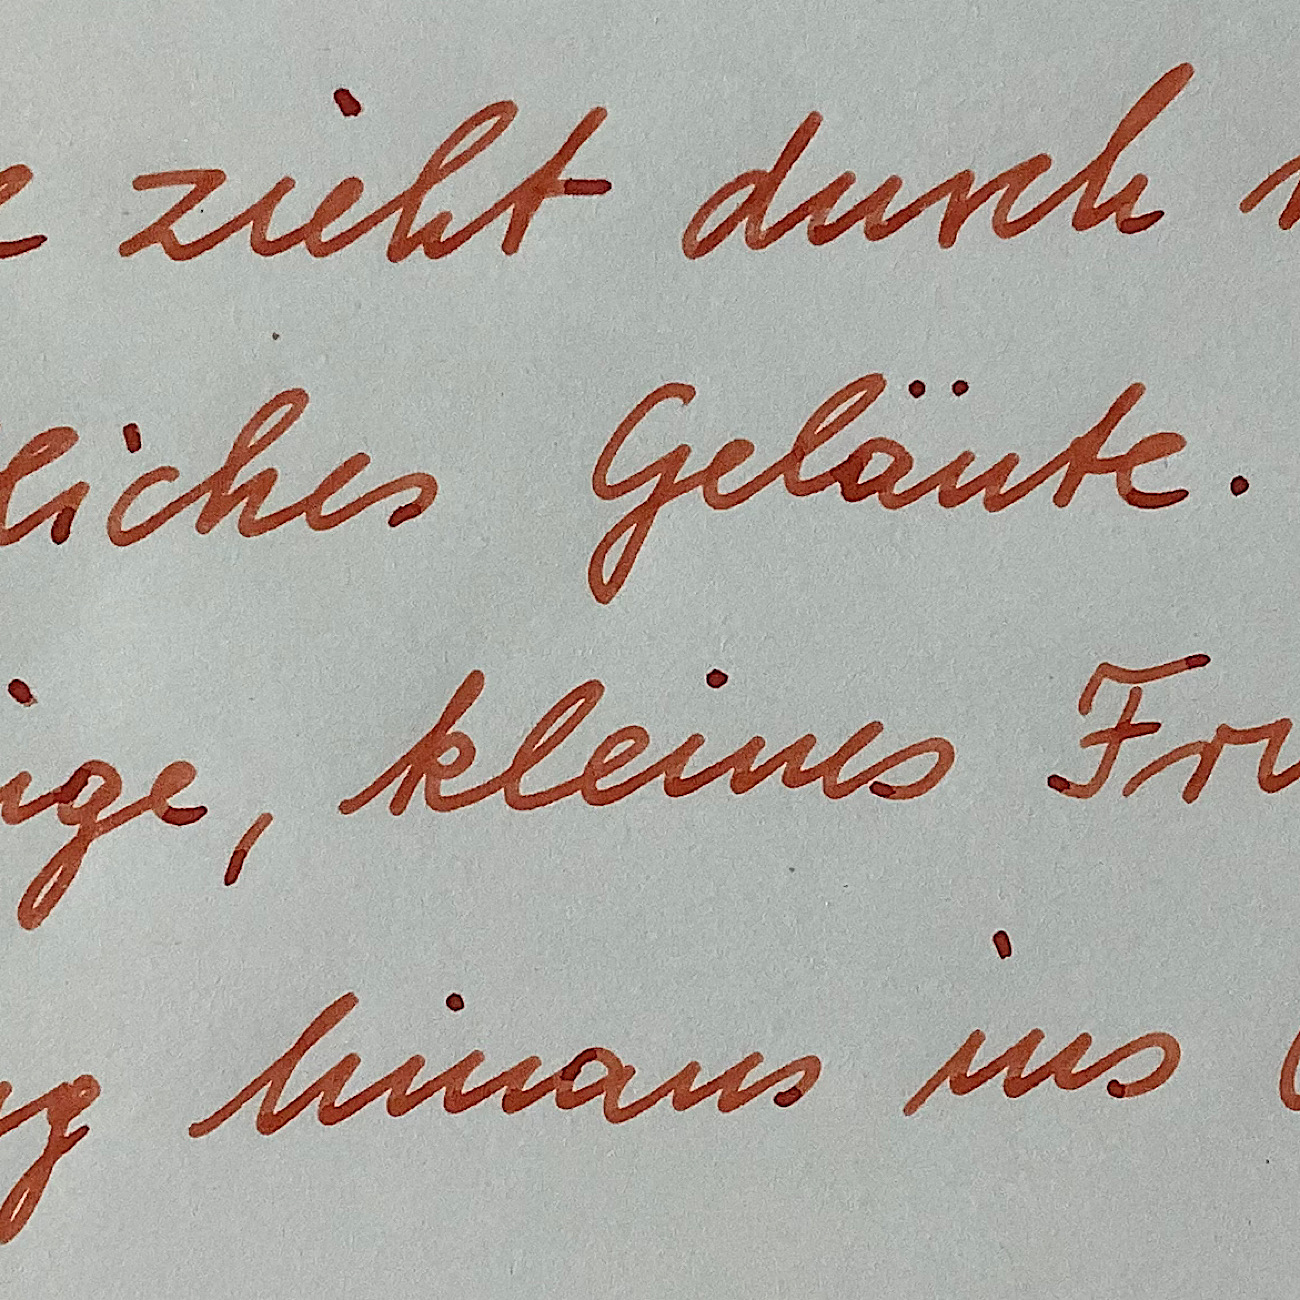 e zieht durch
liches Geläute.
nge, kleines Frü
ng hinaus ins